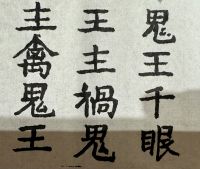 鬼王千眼
王主禍鬼
主禽鬼王